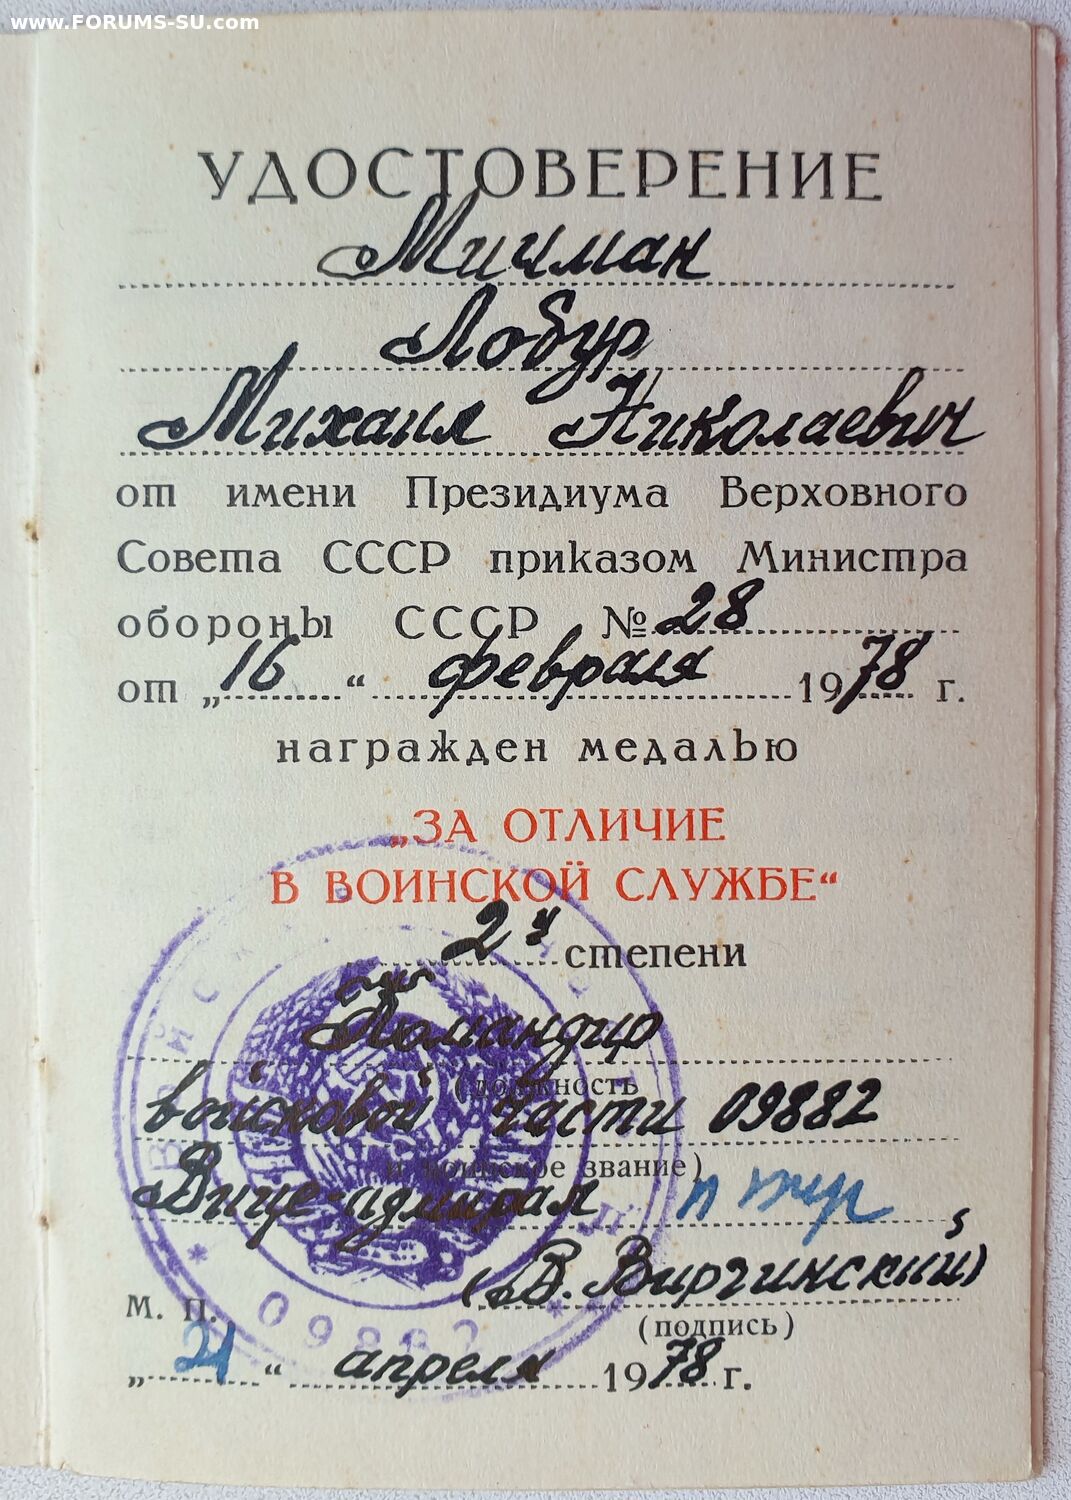 www.FORUMS-SU.com
УДОСТОВЕРЕНИЕ
Мичман
Лобур
Михаил Николаевич
от имени Президиума Верховного
Совета СССР приказом Министра
обороны СССР № 28
от „16“ февраля 1978 г.
награжден медалью
„ЗА ОТЛИЧИЕ
В ВОИНСКОЙ СЛУЖБЕ“
2й степени
Командир
(должность
войсковой части 09882
и воинское звание)
Вице-адмирал
(В. Виргинский)
М. П.
(подпись)
„21“ апреля 1978 г.
09882